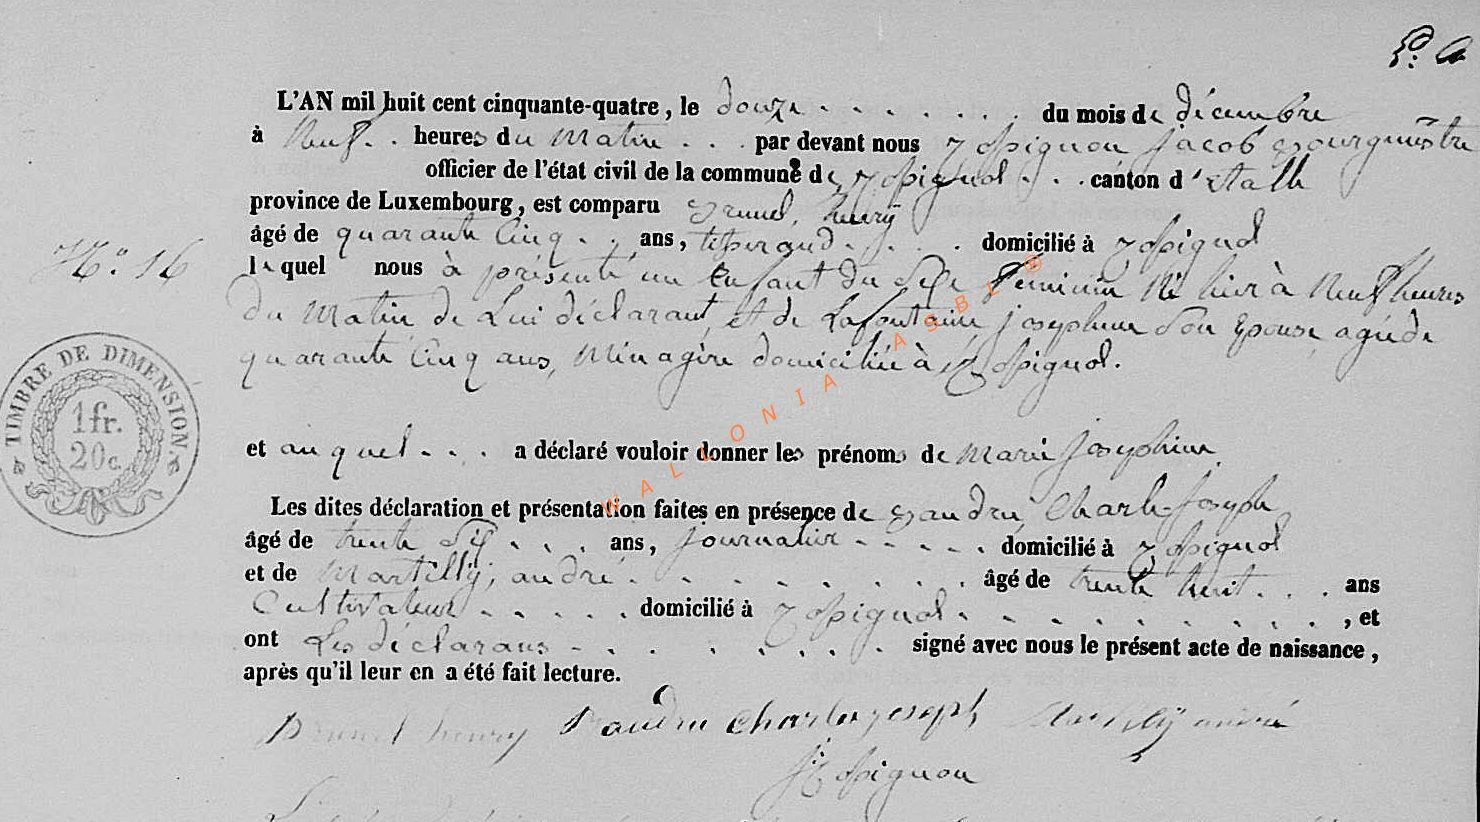 L'AN mil huit cent cinquante-quatre, le douze du mois de décembre
à Neuf heures du Matin par devant nous Jacob Bourgmestre
officier de l'état civil de la commune de canton d'Etalle
province de Luxembourg, est comparu Brunel, henrÿ
N.° 16
âgé de quarante Cinq ans, domicilié à
lequel nous à présenté un Enfant du Sexe feminin Né hier à Neuf heures
du Matin de Lui déclarant, et de Lafontaine josephine Son Epouse, agée de
quarante Cinq ans, Ménagère domiciliée à
TIMBRE DE DIMENSION.
1 fr.
20 c.
et auquel a déclaré vouloir donner les prénoms de Marie josephine
Les dites déclaration et présentation faites en présence de Baudru, Charle-Joseph
âgé de trente Six ans, journalier domicilié à
et de Martillÿ, andré âgé de trente huit ans
Cultivateur domicilié à , et
ont Les déclarans signé avec nous le présent acte de naissance,
après qu'il leur en a été fait lecture.
Brunel henry Baudru Charles joseph Martillÿ andré
WALLONIA ASBL ®